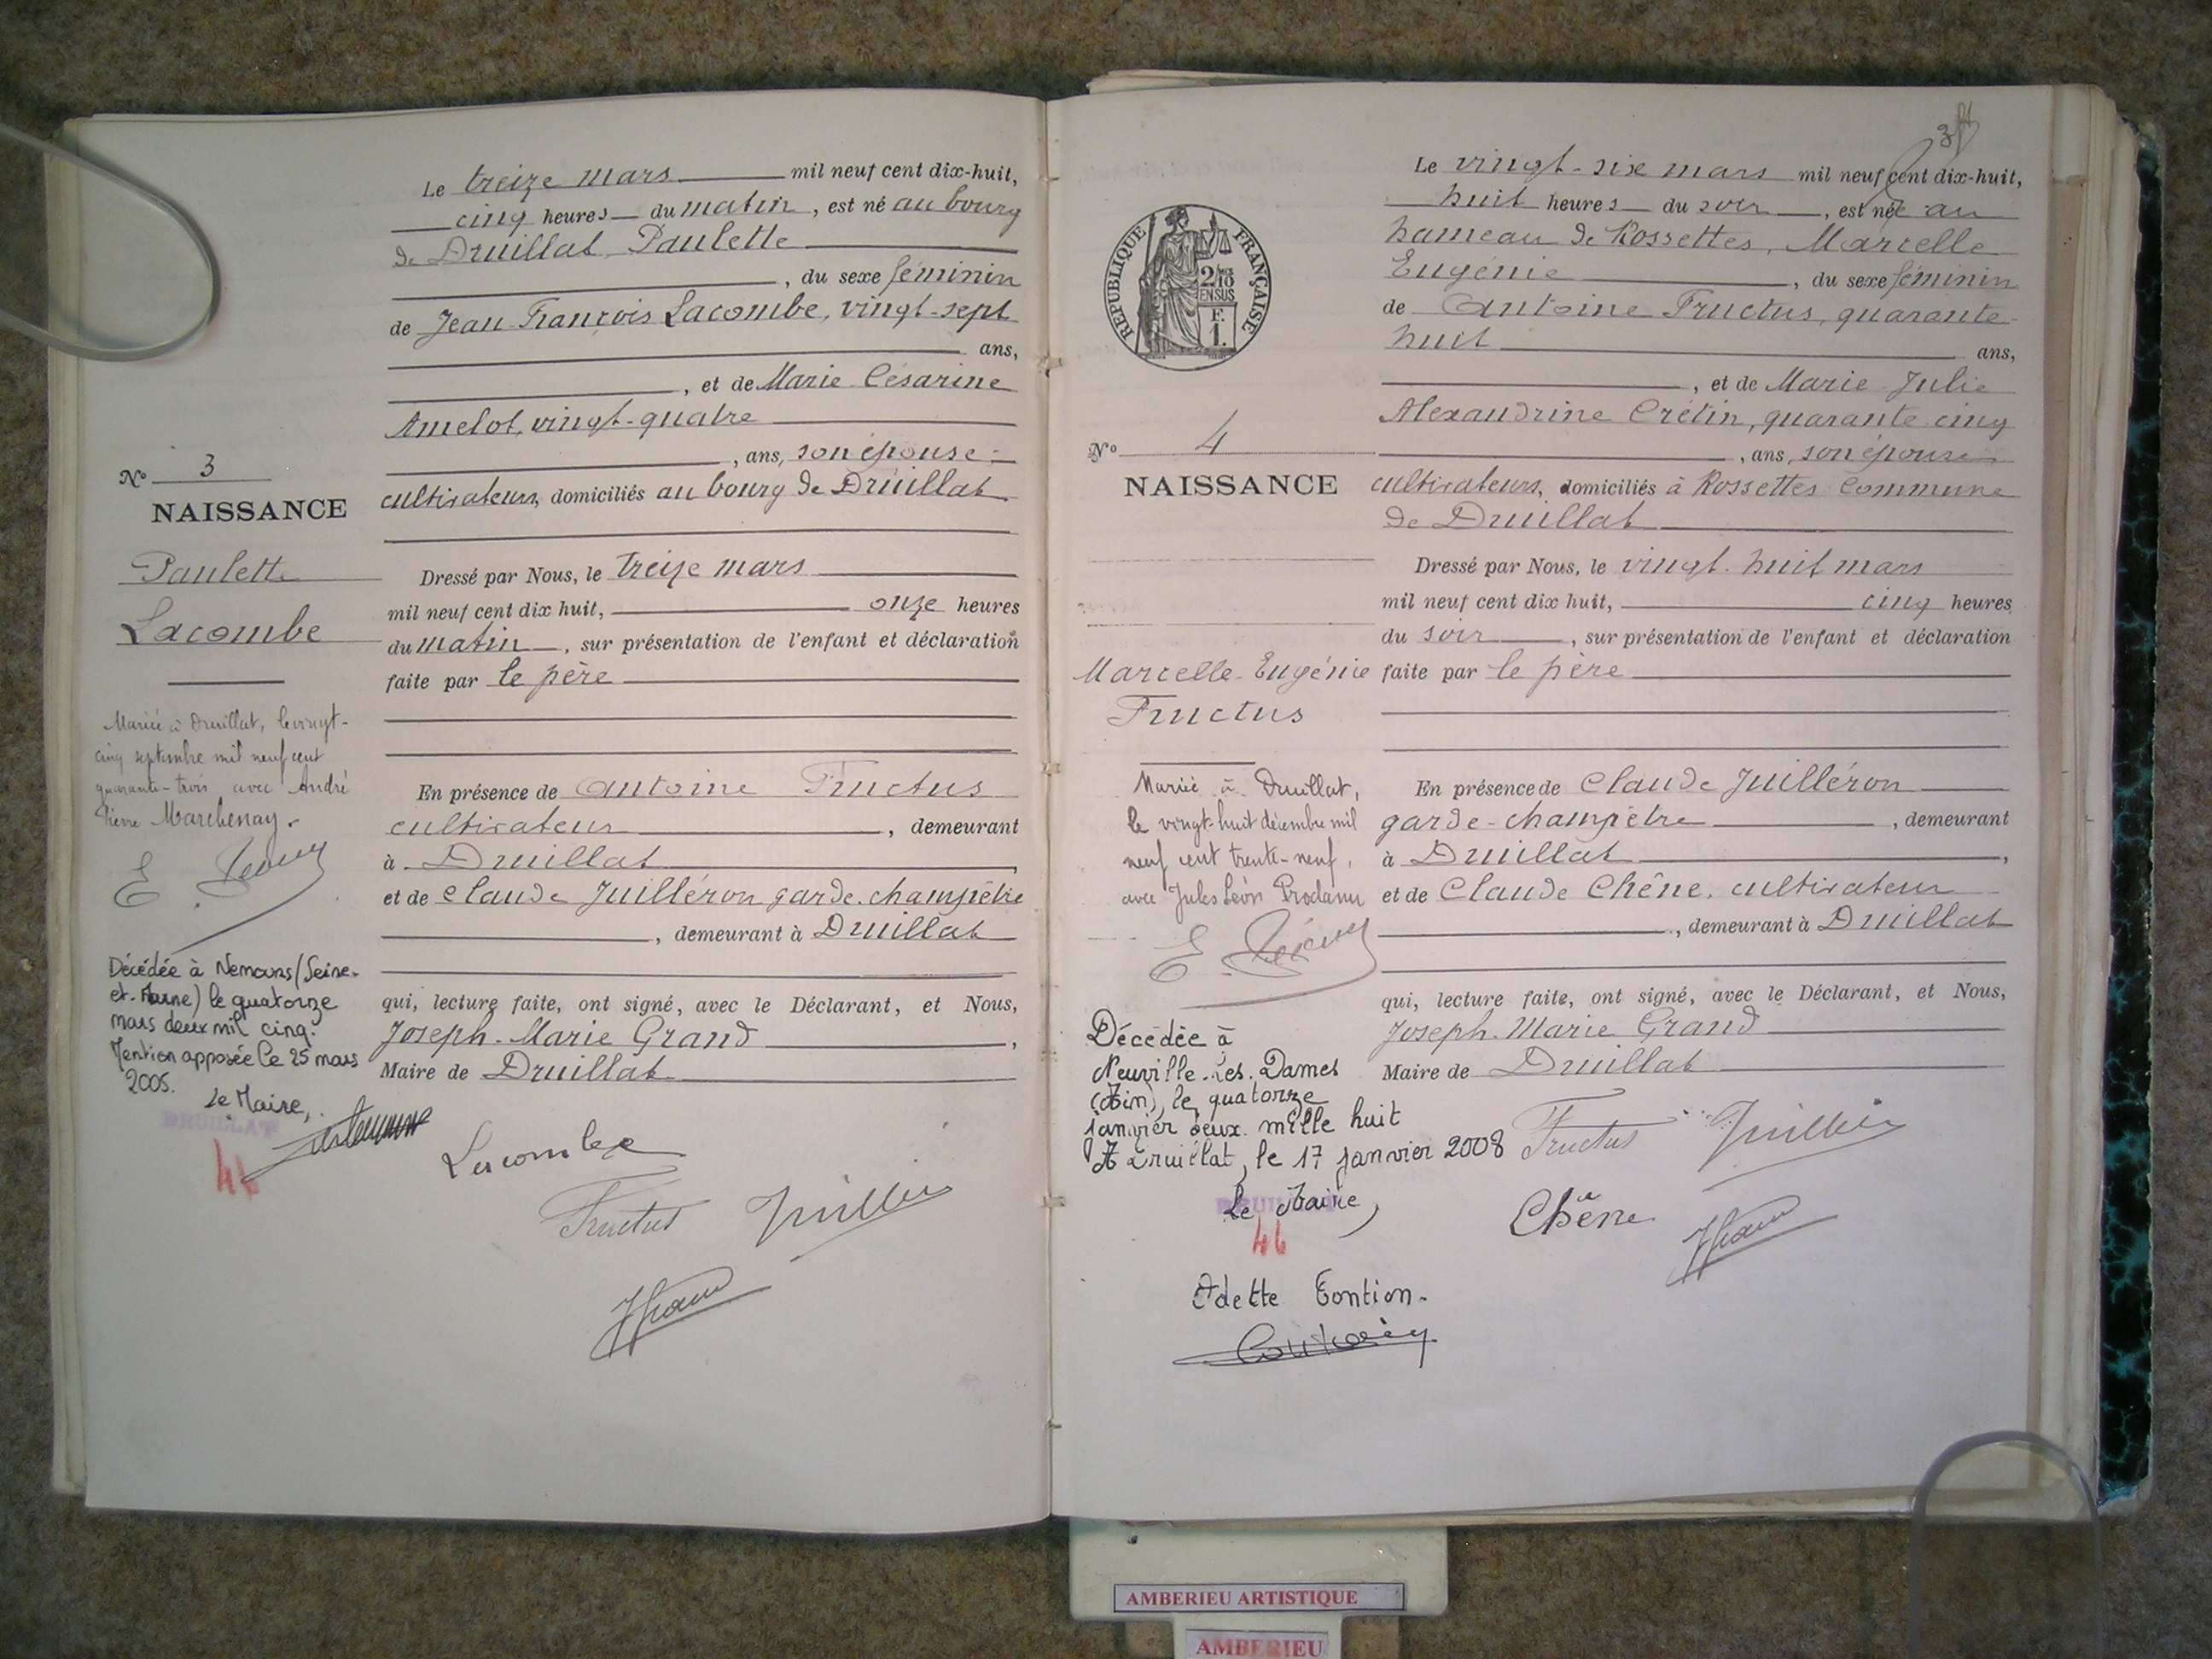 Le treize mars mil neuf cent dix-huit,
cinq heures du matin, est né au bourg
de Druillat Paulette
, du sexe féminin
de Jean François Lacombe, vingt-sept
ans,
, et de Marie Césarine
Amelot, vingt-quatre
, ans, son épouse
cultivateurs, domiciliés au bourg de Druillat
Nº 3
NAISSANCE
Paulette
Lacombe
Dressé par Nous, le treize mars
mil neuf cent dix huit, onze heures
du matin, sur présentation de l'enfant et déclaration
faite par le père
Mariée à Druillat, le vingt-
cinq septembre mil neuf cent
quarante-trois avec André
Pierre Marchenay.
En présence de Antoine Fructus
cultivateur, demeurant
à Druillat
et de Claude Juilléron garde-champêtre
, demeurant à Druillat
Décédée à Nemours (Seine-
et-Marne) le quatorze
mars deux mil cinq.
Mention apposée le 25 mars
2005.
Le Maire,
DRUILLAT
46
qui, lecture faite, ont signé, avec le Déclarant, et Nous,
Joseph-Marie Grand,
Maire de Druillat
Lacombe
Fructus
3
RÉPUBLIQUE FRANÇAISE
2/10
EN SUS
F.
1.
Le vingt-six mars mil neuf cent dix-huit,
huit heures du soir, est née au
hameau de Rossettes, Marcelle
Eugénie, du sexe féminin
de Antoine Fructus, quarante-
huit ans,
, et de Marie Julie
Alexandrine Crétin, quarante cinq
, ans, son épouse
cultivateurs, domiciliés à Rossettes Commune
de Druillat
Nº 4
NAISSANCE
Marcelle-Eugénie
Fructus
Dressé par Nous, le vingt-huit mars
mil neuf cent dix huit, cinq heures
du soir, sur présentation de l'enfant et déclaration
faite par le père
Mariée à Druillat,
le vingt-huit décembre mil
neuf cent trente-neuf,
avec Jules Léon Prodanu
En présence de Claude Juilléron
garde-champêtre, demeurant
à Druillat,
et de Claude Chêne, cultivateur
, demeurant à Druillat
qui, lecture faite, ont signé, avec le Déclarant, et Nous,
Joseph-Marie Grand
Maire de Druillat
Décédée à
Neuville-Les-Dames
(Ain), le quatorze
janvier deux mille huit
A Druillat, le 17 janvier 2008
Le Maire,
46
Odette Tontion.
Fructus
Chêne
AMBERIEU ARTISTIQUE
AMBERIEU